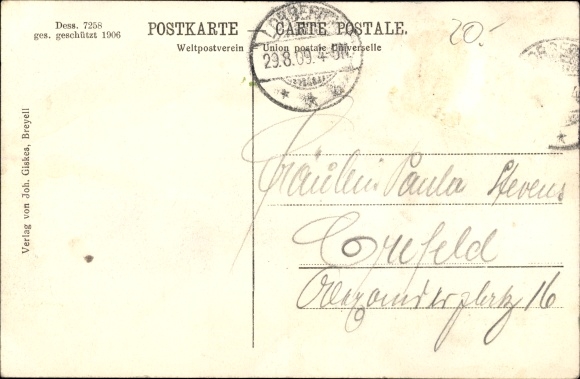 Dess. 7258
ges. geschützt 1906
POSTKARTE — CARTE POSTALE.
Weltpostverein — Union postale Universelle
20.-
29.8.09. 4-5N.
Verlag von Joh. Giskes, Breyell
Fräulein Paula Stevens
Crefeld
Alexanderplatz 16